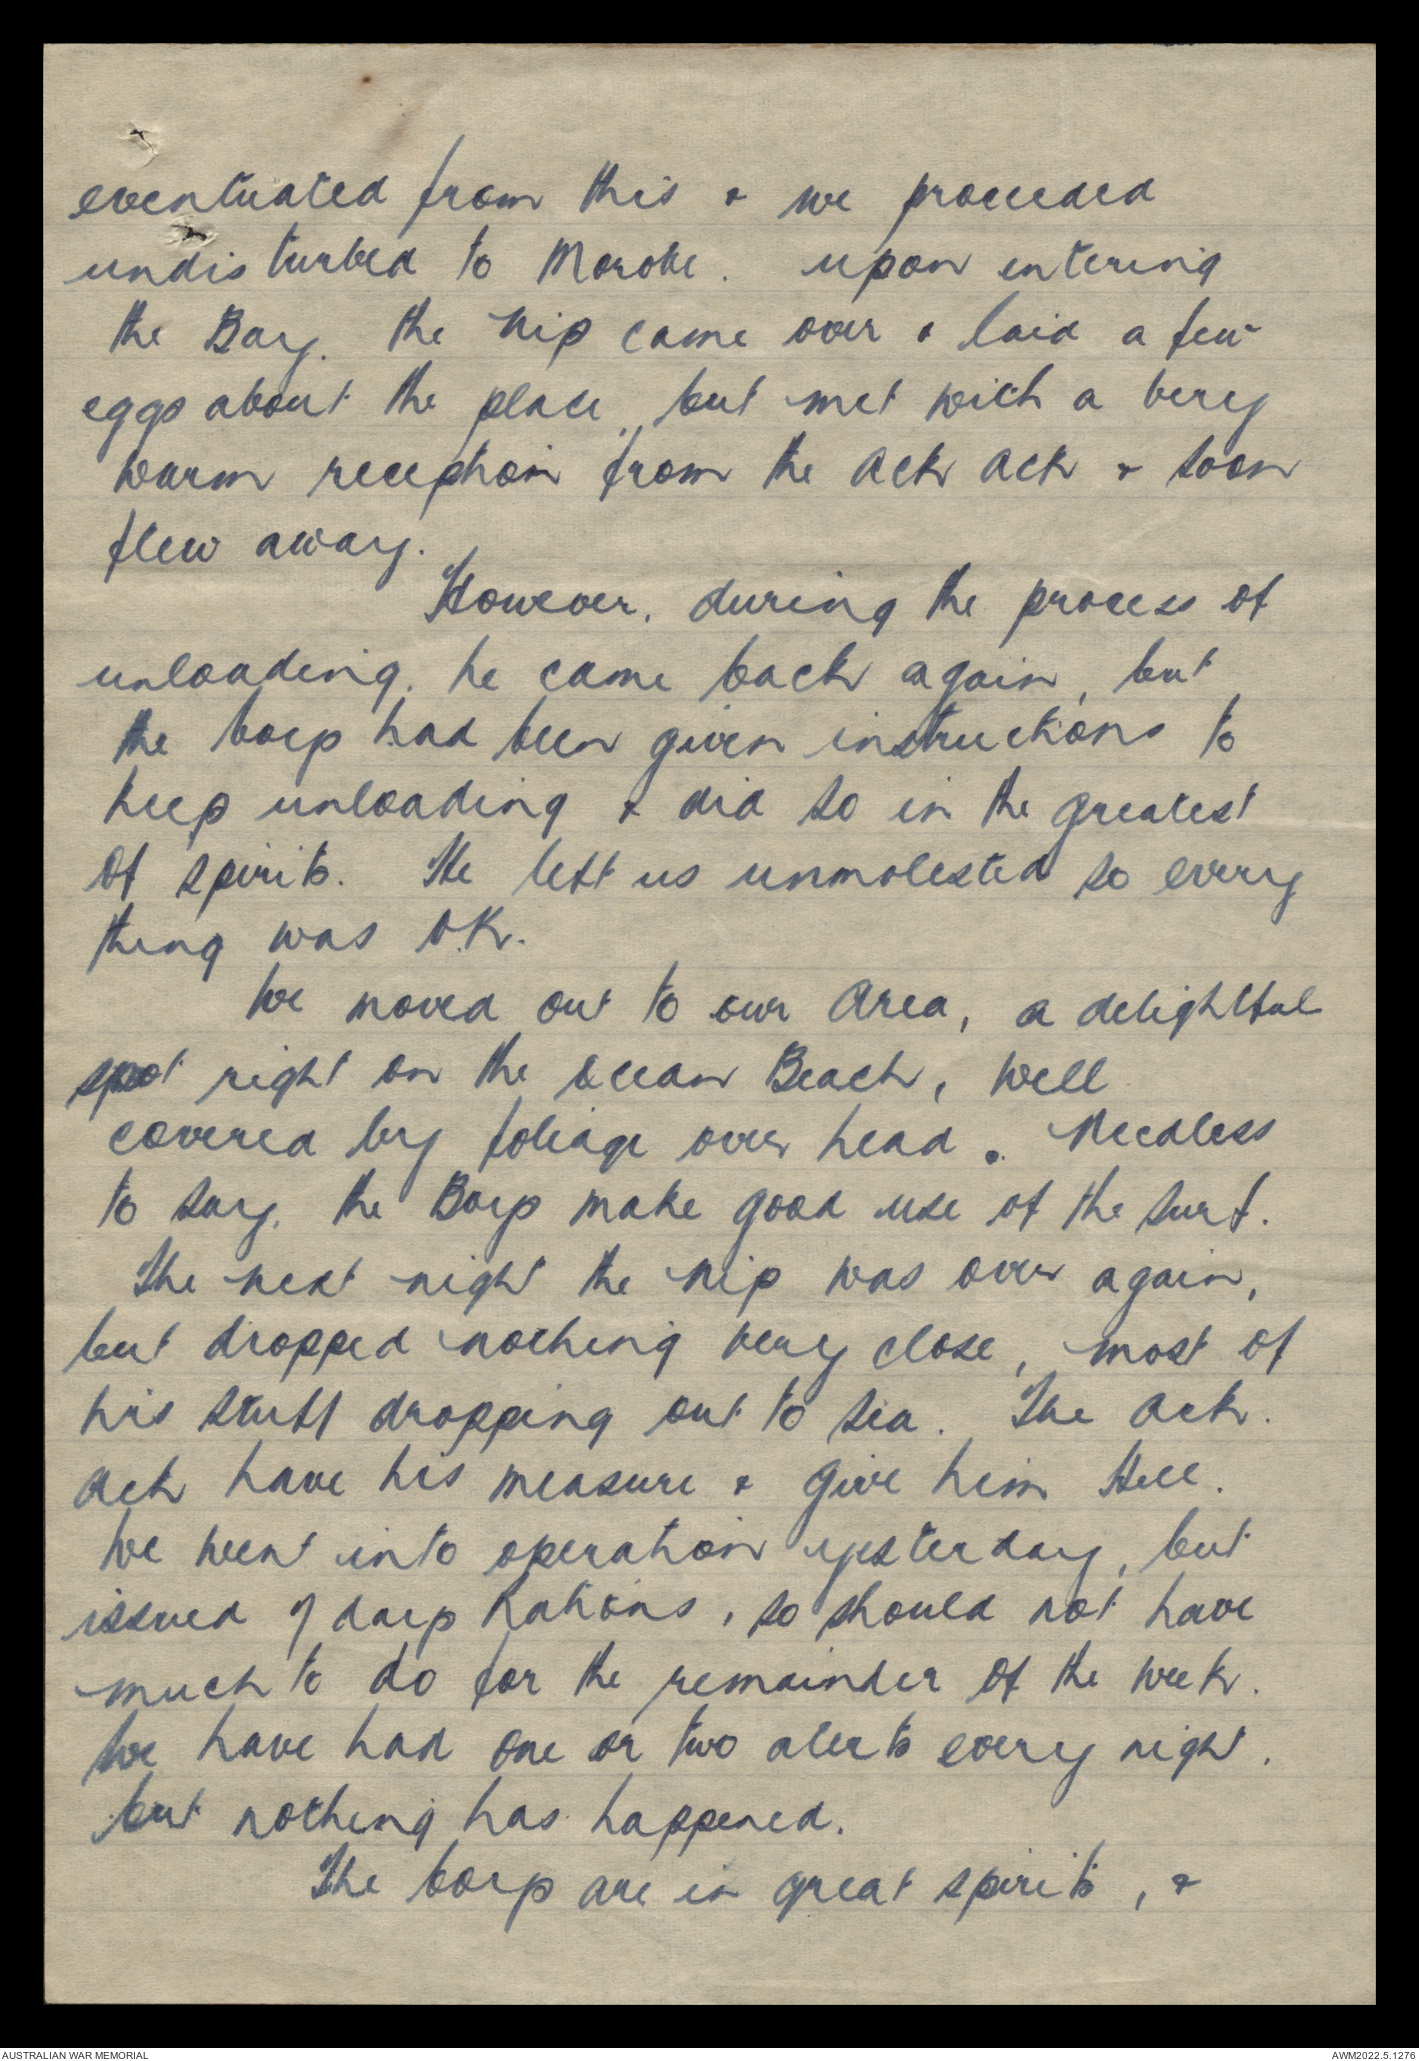 eventuated from this & we proceeded
undisturbed to Morobe. upon entering
the Bay. the Nip came over & laid a few
eggs about the place, but met with a very
warm reception from the Ack Ack & soon
flew away.
However, during the process of
unloading. he came back again, but
the boys had been given instructions to
keep unloading & did so in the greatest
of spirits. He left us unmolested so every
thing was O.K.
We moved out to our Area, a delightful
spot right on the ocean Beach, well
covered by foliage over head. Needless
to say. the Boys make good use of the surf.
The next night the Nip was over again,
but dropped nothing very close, most of
his stuff dropping out to sea. The Ack.
Ack have his measure & give him Hell.
We went into operation yesterday, but
issued 7 days Rations, so should not have
much to do for the remainder of the week.
We have had one or two alerts every night.
but nothing has happened.
The boys are in great spirits, &
AUSTRALIAN WAR MEMORIAL
AWM2022.5.1276